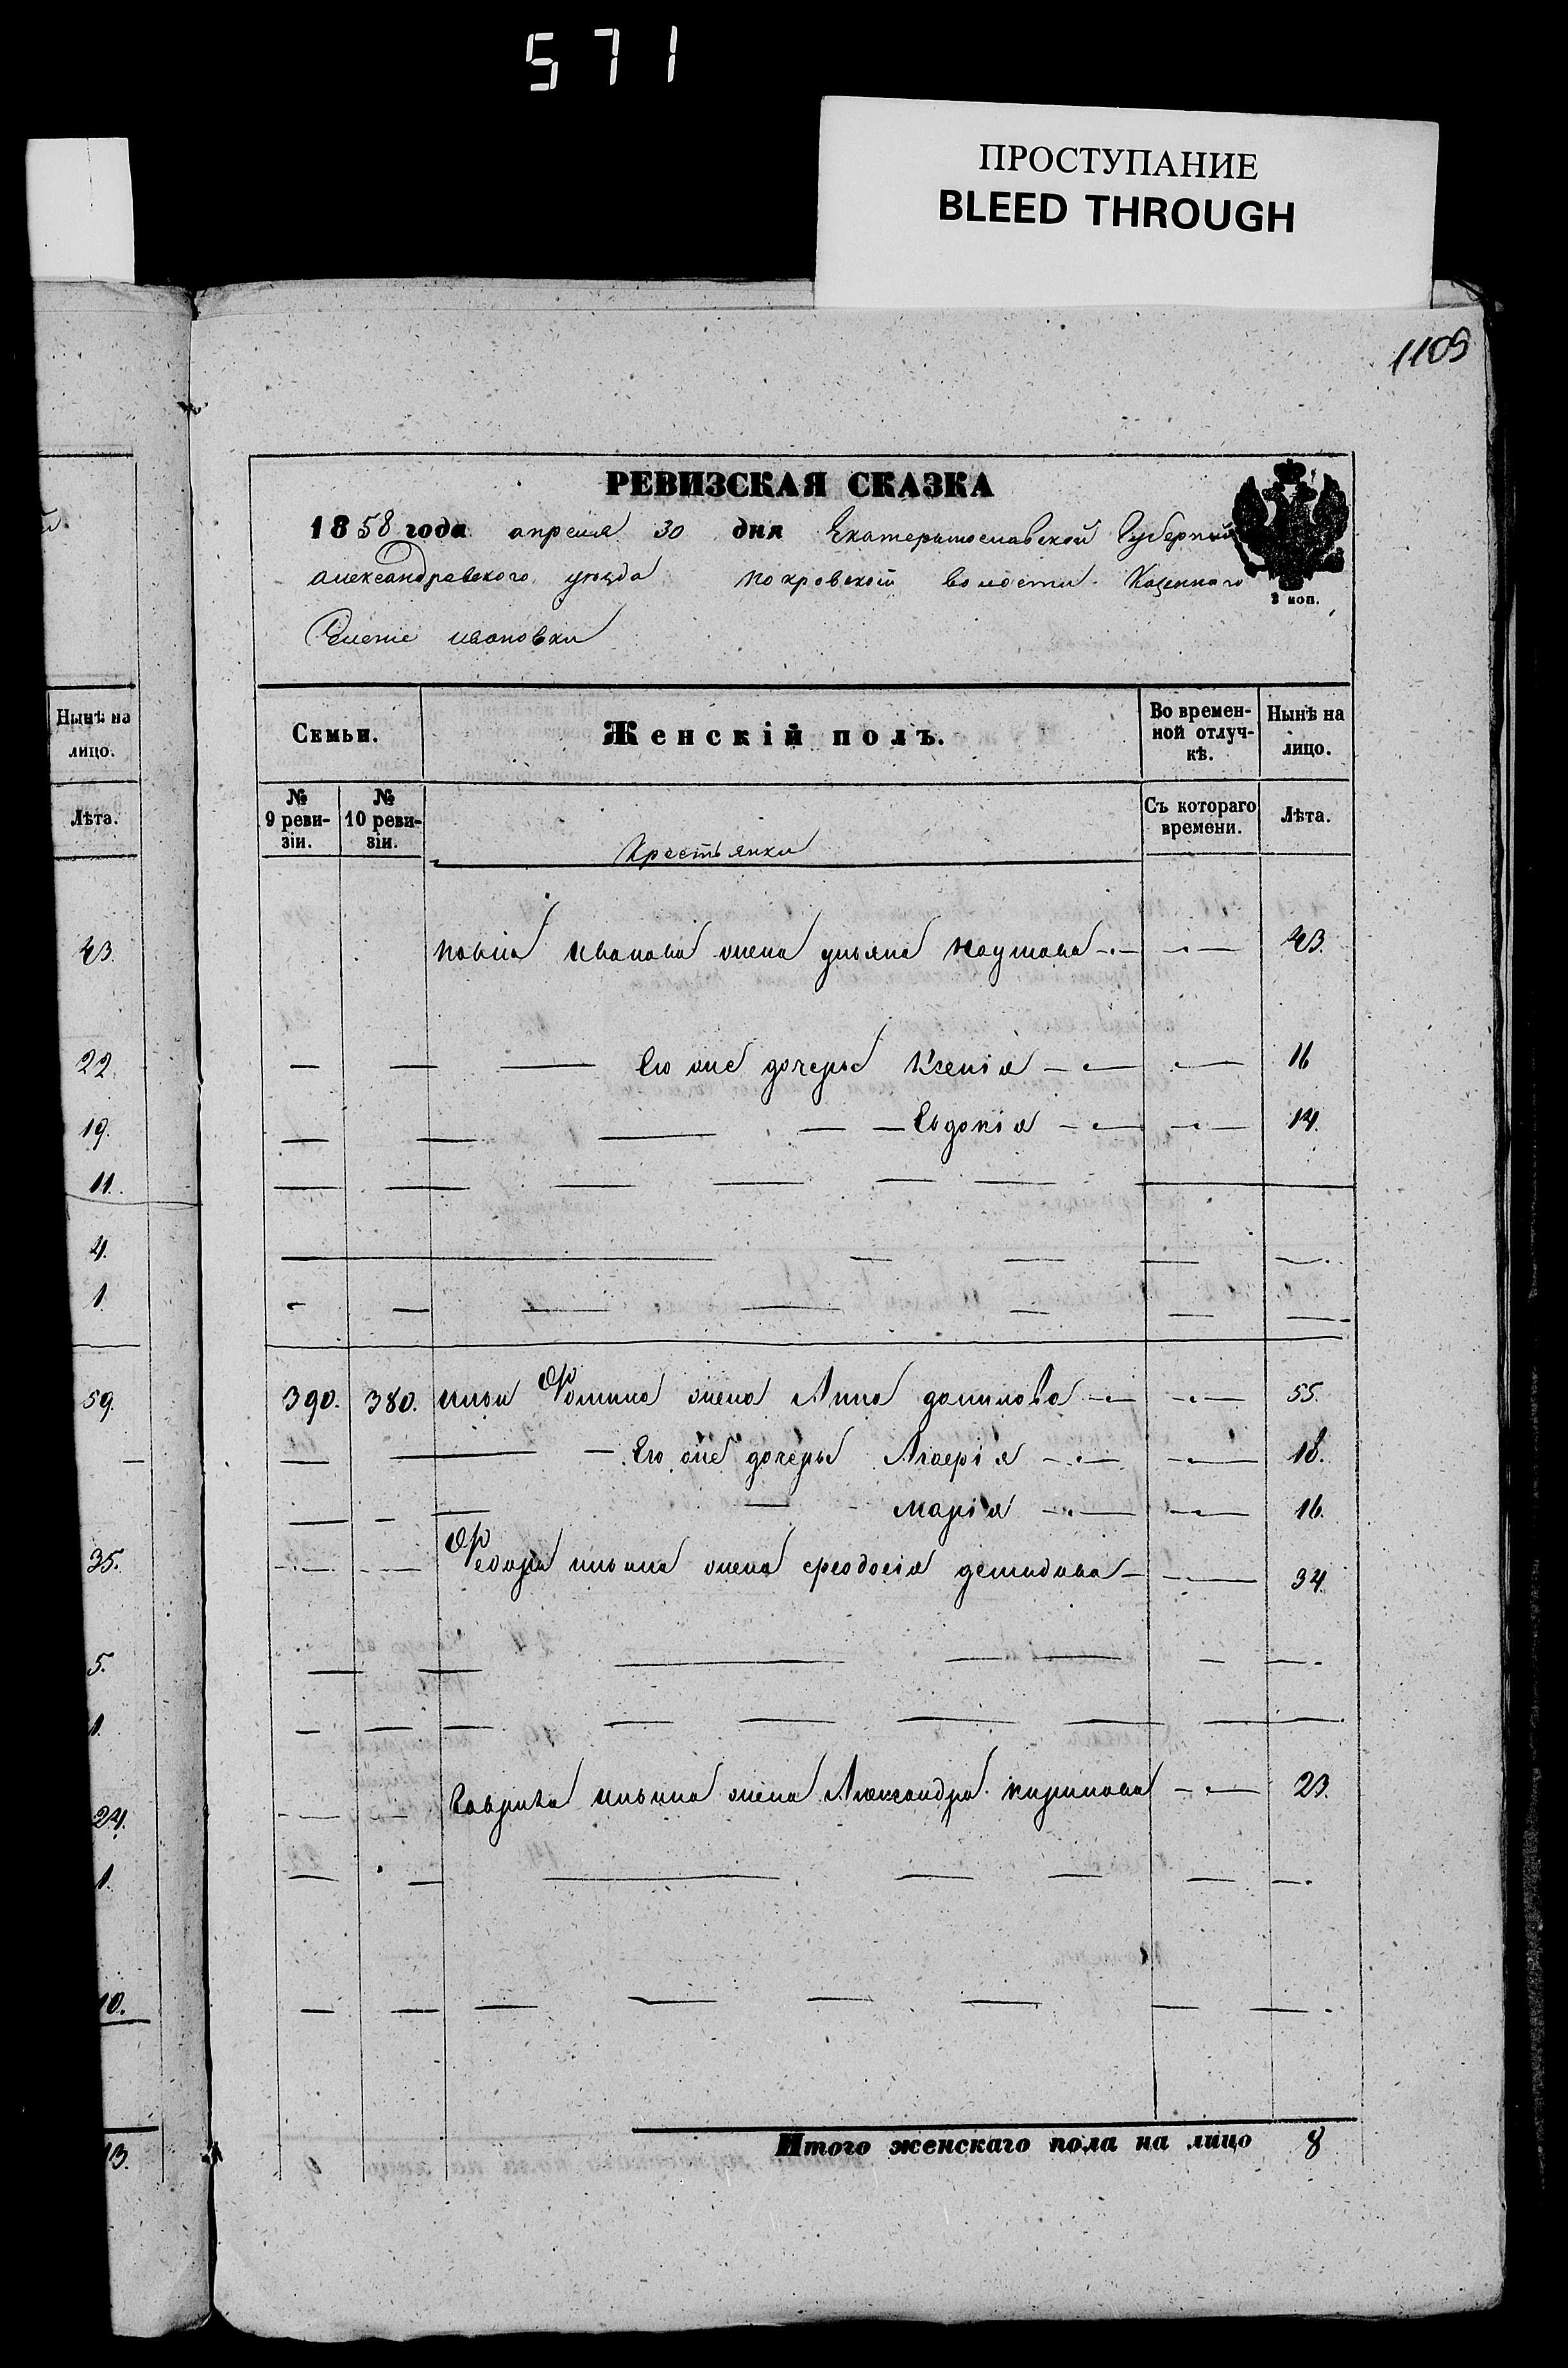 571
ПРОСТУПАНИЕ
BLEED THROUGH
1109
РЕВИЗСКАЯ СКАЗКА
1858 года апреля 30 дня Екатеринославской Губерніи
Александровского уѣзда покровской волости Казенного
Селенія Ивановки
2 коп.
Нынѣ на лицо.
Лѣта.
Семьи.
Женскій полъ.
Во времен-
ной отлуч-
кѣ.
Нынѣ на
лицо.
№
9 реви-
зіи.
№
10 реви-
зіи.
Крестьянки
Съ котораго
времени.
Лѣта.
43.
павла Иванова жена ульяна Наумова 43.
22.
Его же дочерье Ксенія 16
19.
Евдокія 14.
11.
4.
1
59.
390. 380. ильи Фомина жена Анна данилова 55.
Его же дочерье 18.
марія 16.
35.
Федора ильина жена феодосія демидова 34.
5.
1.
24.
Гаврила ильина жена Александра кирилова 23.
1.
10.
13.
Итого женскаго пола на лицо 8